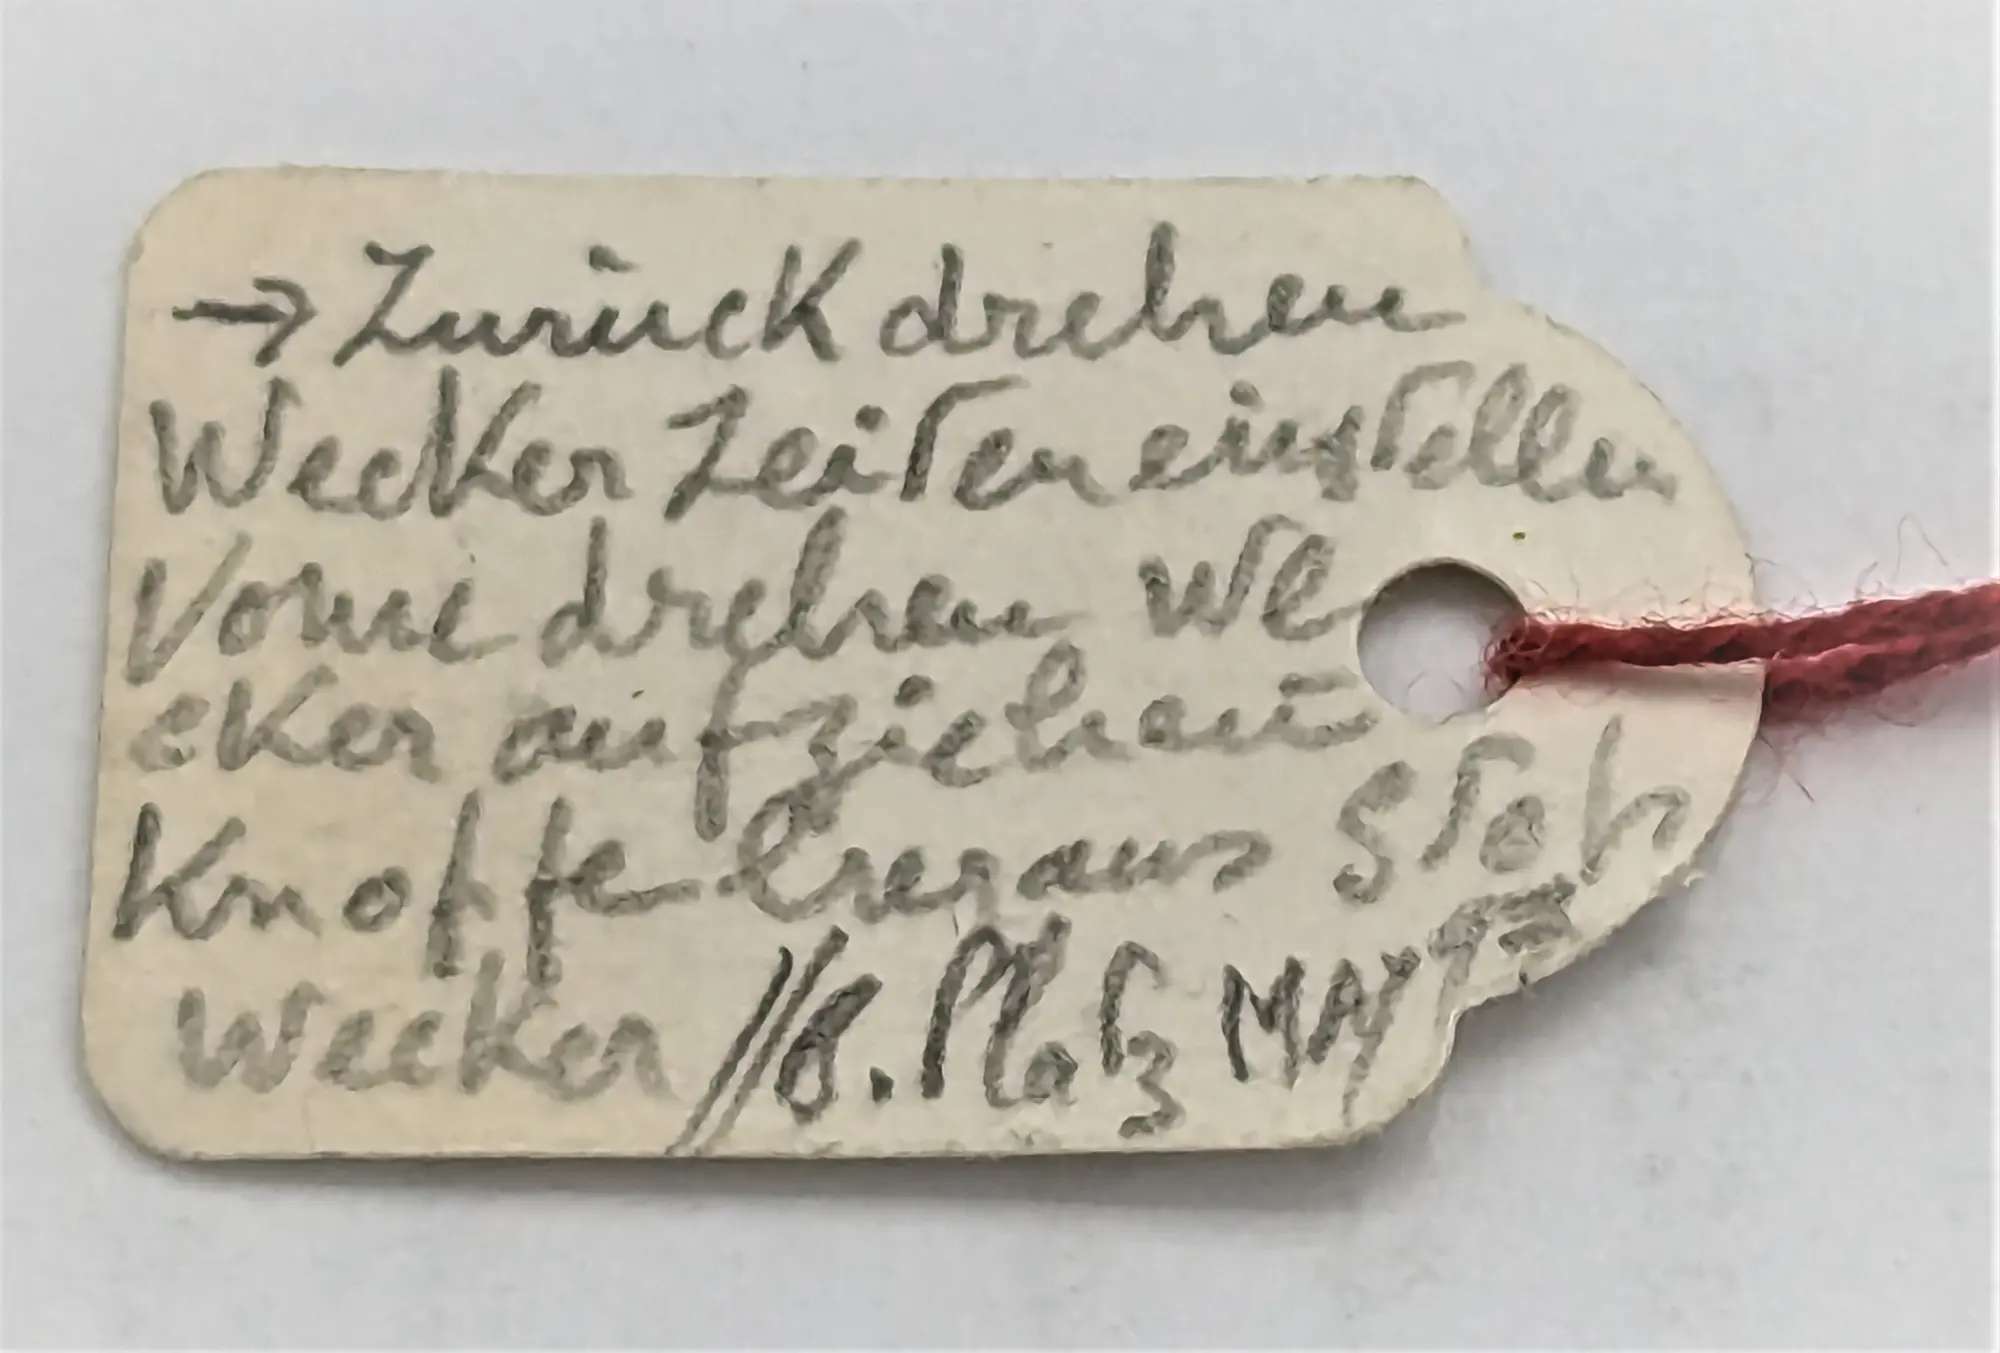 → Zurück drehen
Wecker Zeiten einstellen
Vorne drehen We
cker aufziehen
Knopfe heraus
Wecker // 8. Platz